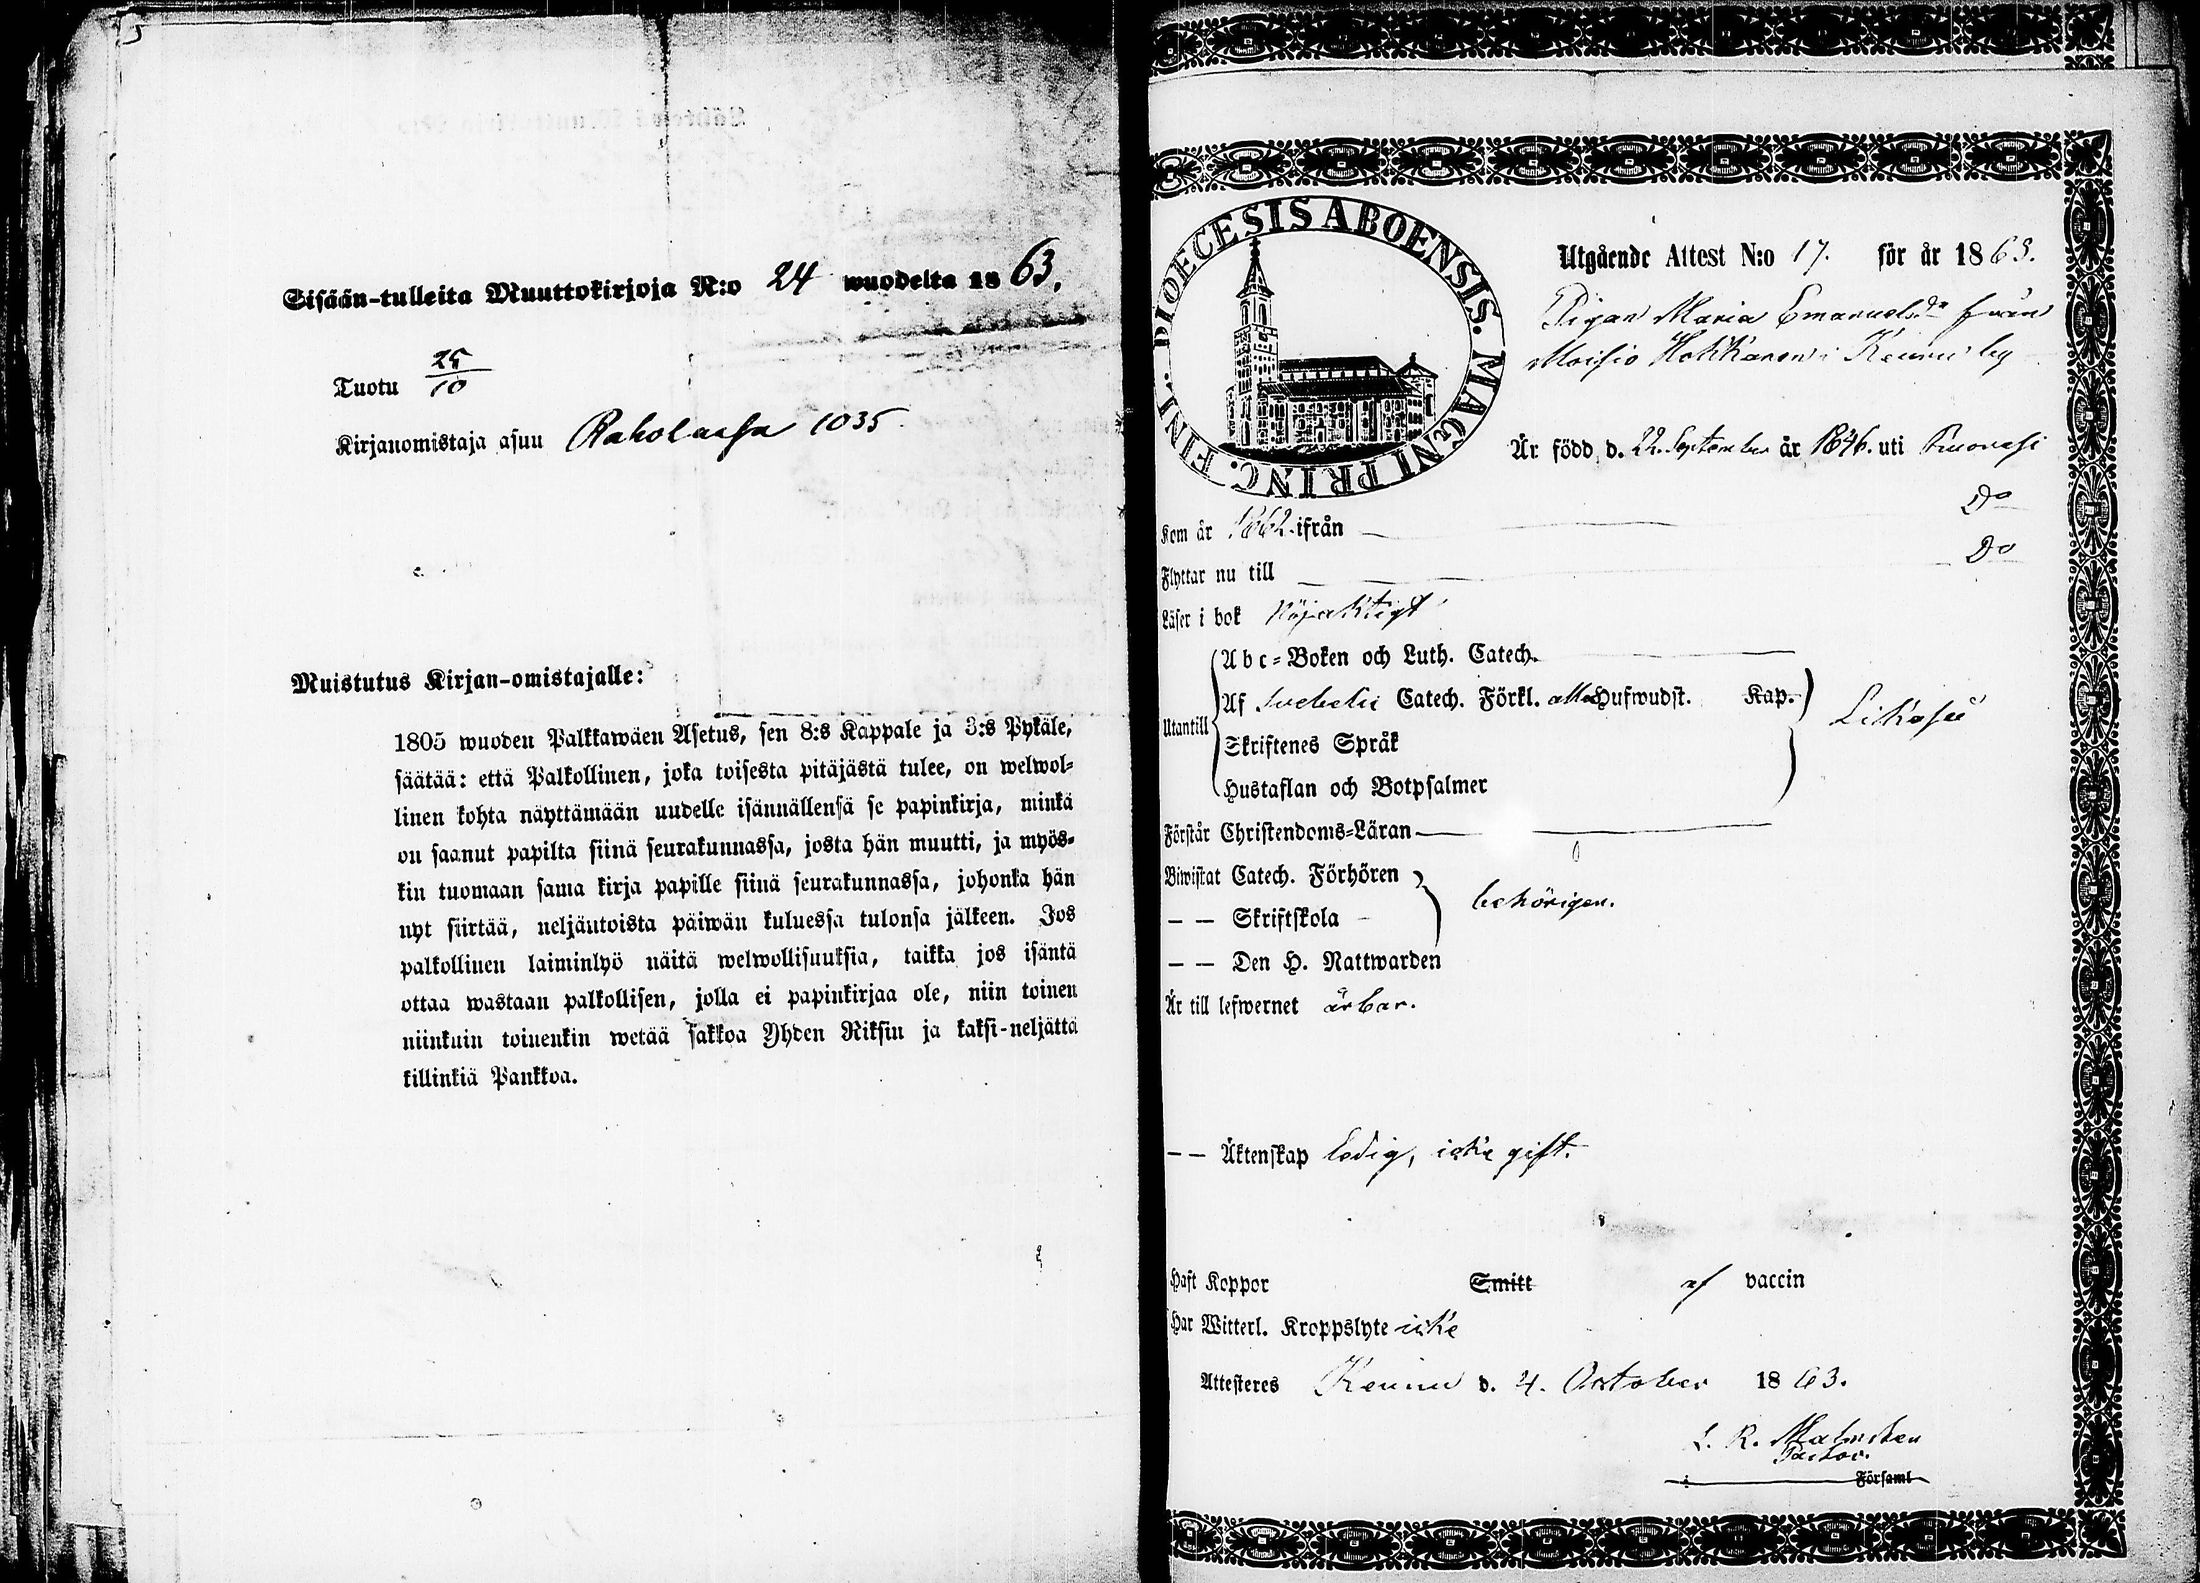 Sisään-tulleita Muuttokirjoja N:o 24 wuodelta 1863.
Tuotu 25/10
Kirjanomistaja asuu Raholassa 1035
Muistutus Kirjan-omistajalle:
1805 wuoden Palkkawäen Asetus, sen 8:s Kappale ja 3:s Pykäle,
säätää: että Palkollinen, joka toisesta pitäjästä tulee, on welwol-
linen kohta näyttämään uudelle isännällensä se papinkirja, minkä
on saanut papilta siinä seurakunnassa, josta hän muutti, ja myös-
kin tuomaan sama kirja papille siinä seurakunnassa, johonka hän
nyt siirtää, neljäntoista päiwän kuluessa tulonsa jälkeen. Jos
palkollinen laiminlyö näitä welwollisuuksia, taikka jos isäntä
ottaa wastaan palkollisen, jolla ei papinkirjaa ole, niin toinen
niinkuin toinenkin wetää sakkoa Yhden Riksin ja kaksi-neljättä
killinkiä Pankkoa.
DIOECESIS ABOENSIS. MAGNI PRINC. FINL.
Utgående Attest N:o 17. för år 1863.
Pigan Maria Emanuelsdr från
Moisio Hokkanen i Keuru by
Är född d. 22 September år 1846. uti Ruovesi
Kom år 1862 ifrån Do
Flyttar nu till Do
Läser i bok Nöjaktigt
Utantill
Abc-Boken och Luth. Catech.
Af Svebelii Catech. Förkl. alla Hufwudst. Kap.
Skriftenes Språk
Hustaflan och Botpsalmer
Likaså
Förstår Christendoms-Läran
Biwistat Catech. Förhören
— — Skriftskola behörigen.
— — Den H. Nattwarden
Är till lefwernet ärbar.
— — Äktenskap ledig, icke gift.
Haft Koppor Smitt af vaccin
Har Witterl. Kroppslyte icke
Attesteres Keuru d. 4. October 1863.
L. R. Malmsten
Pastor.
i Församl